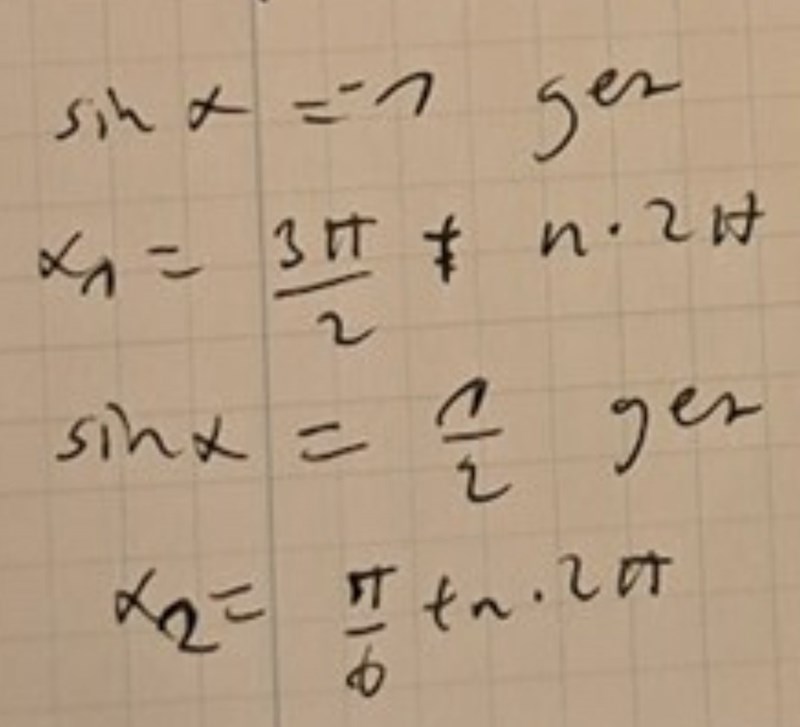 sin x = -1 ges
x₁ = 3π/2 + n · 2π
sin x = 1/2 ges
x₂ = π/6 + n · 2π